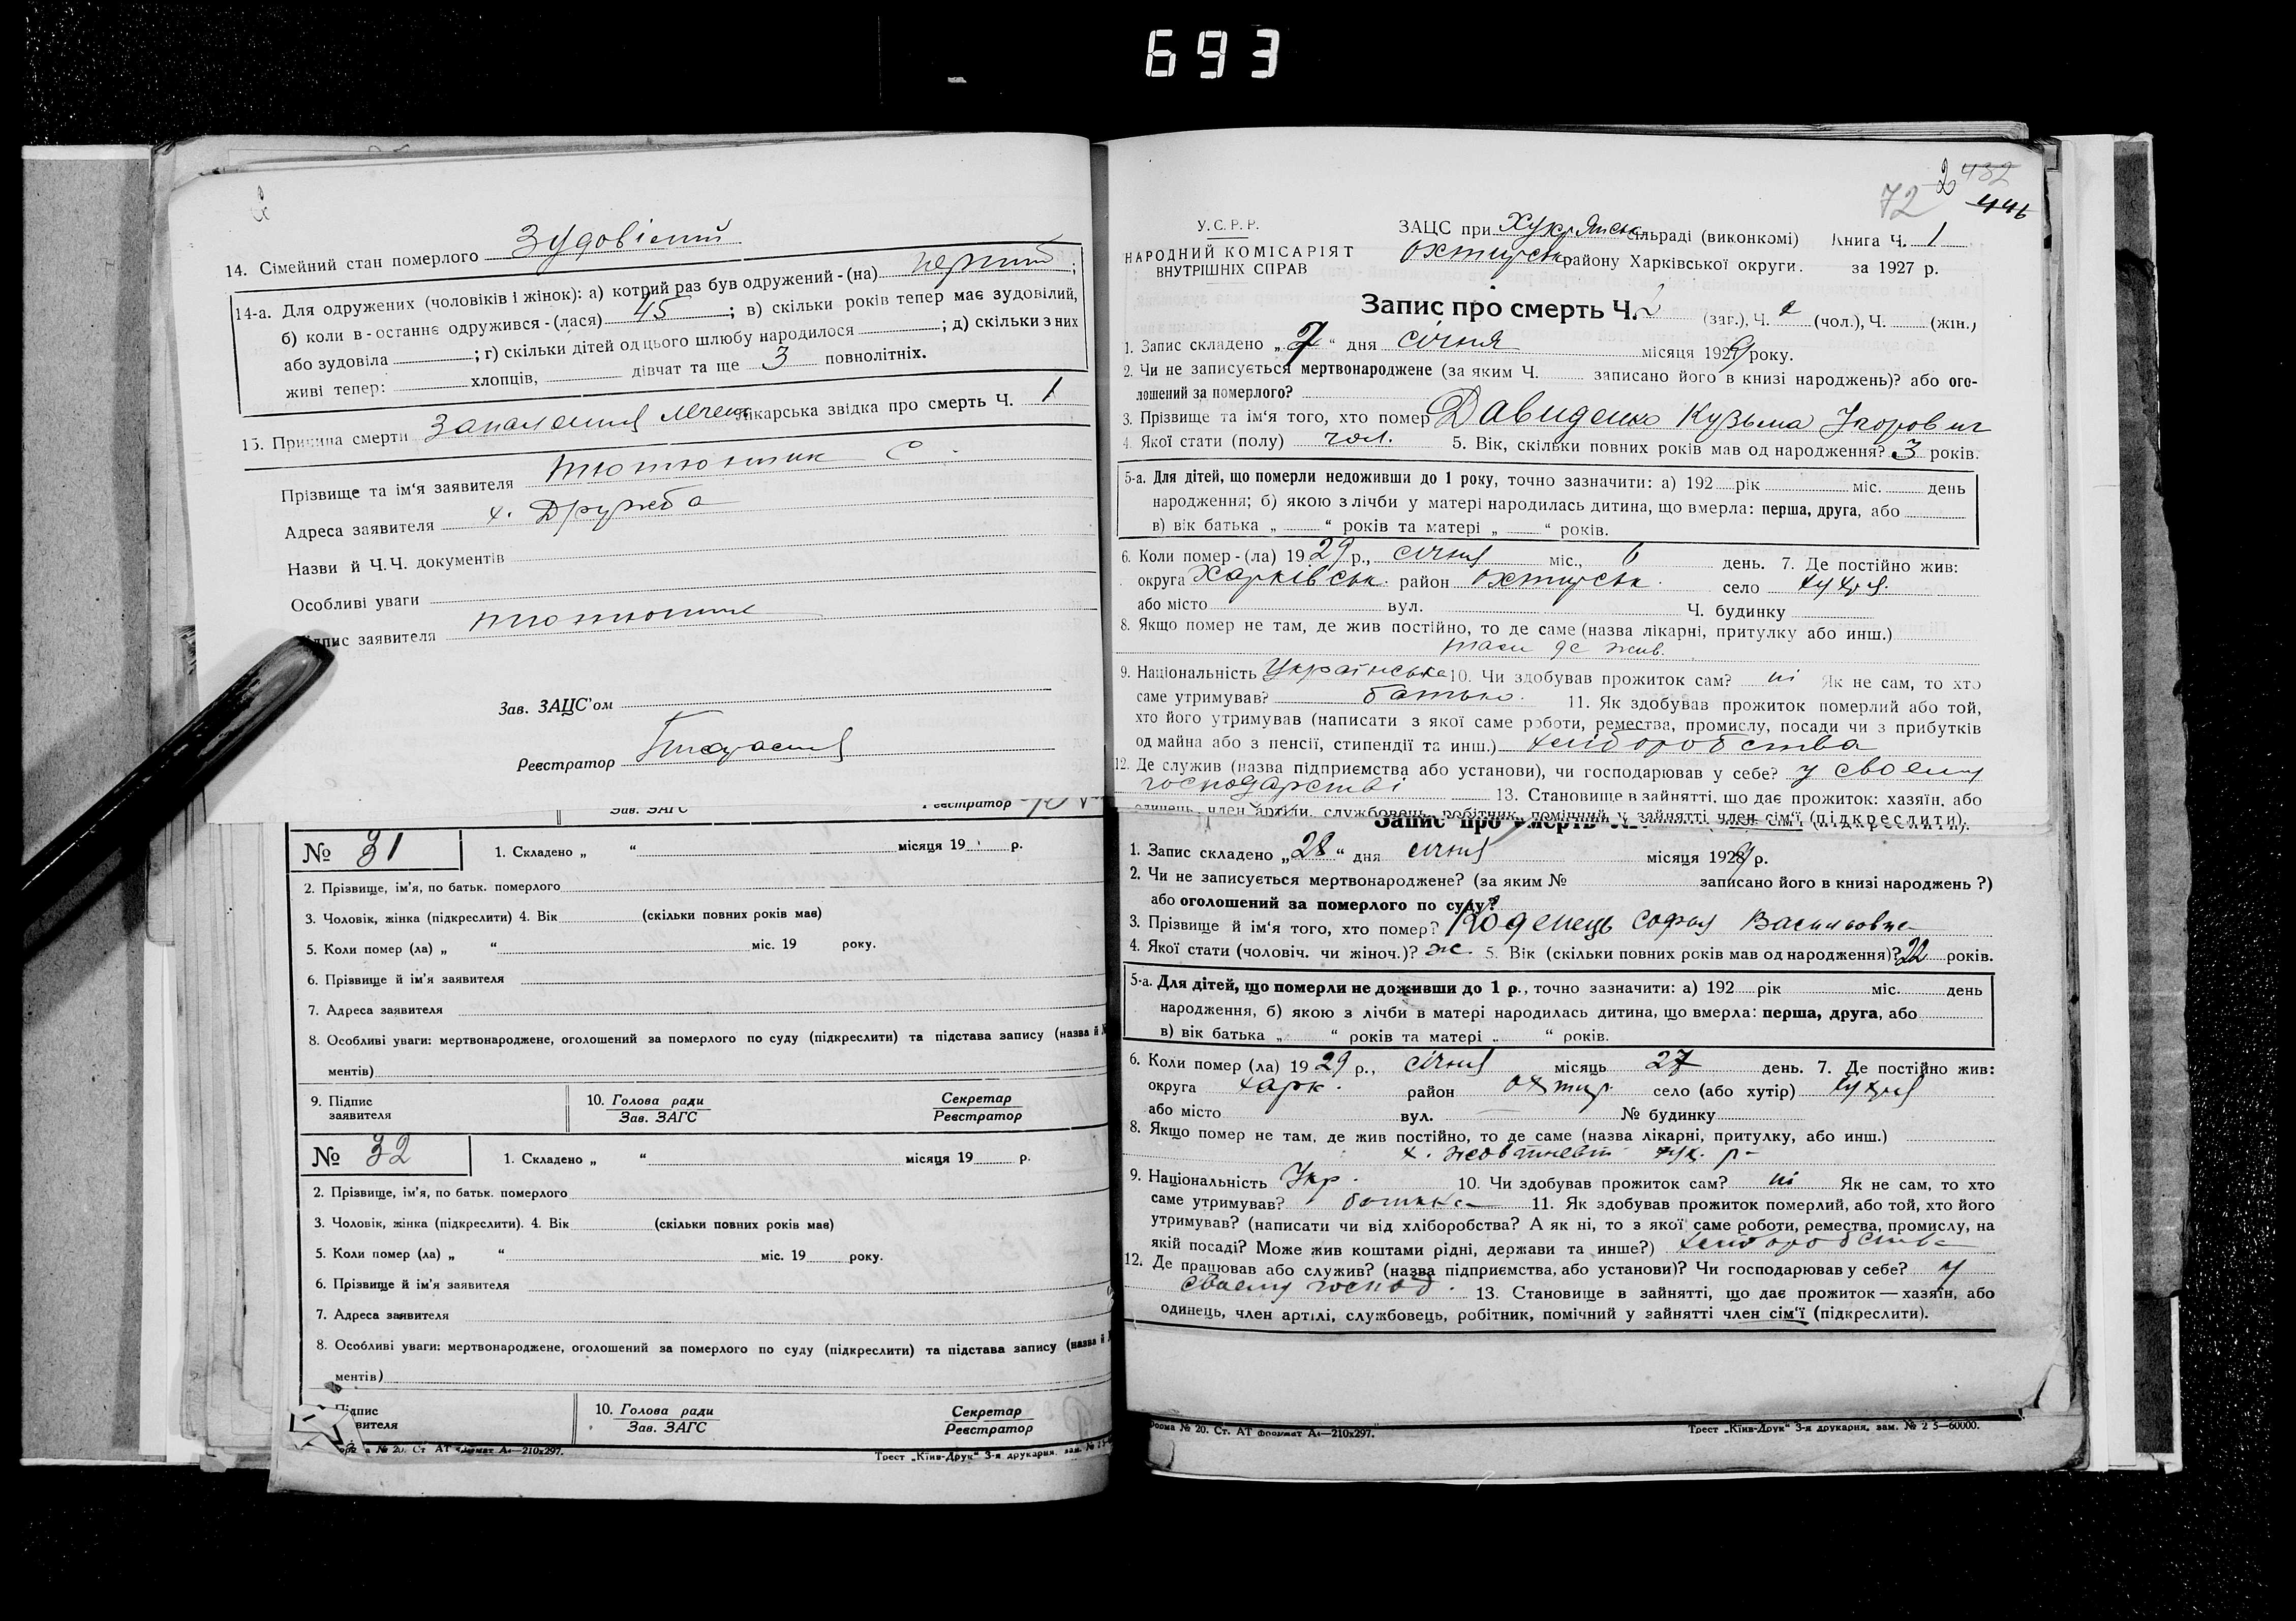 693
14. Сімейний стан померлого Зудовілий
14-а. Для одружених (чоловіків і жінок): а) котрий раз був одружений-(на) перший;
б) коли в-останнє одружився-(лася) 45; в) скільки років тепер має зудовілий,
або зудовіла ; г) скільки дітей од цього шлюбу народилося ; д) скільки з них
живі тепер: хлопців, дівчат та ще 3 повнолітніх.
15. Причина смерти Запалення Лікарська звідка про смерть Ч. 1
Прізвище та ім'я заявителя Тютюнник С
Адреса заявителя х. Дружба
Назви й Ч.Ч. документів
Особливі уваги
Підпис заявителя
Зав. ЗАЦС'ом
Реєстратор
Зав. ЗАГС Реєстратор
№ 31 1. Складено „ “ місяця 19 р.
2. Прізвище, ім'я, по батьк. померлого
3. Чоловік, жінка (підкреслити) 4. Вік (скільки повних років має)
5. Коли помер (ла) „ “ міс. 19 року.
6. Прізвище й ім'я заявителя
7. Адреса заявителя
8. Особливі уваги: мертвонароджене, оголошений за померлого по суду (підкреслити) та підстава запису (назва й №
ментів)
9. Підпис заявителя 10. Голова ради Секретар
Зав. ЗАГС Реєстратор
№ 32 1. Складено „ “ місяця 19 р.
2. Прізвище, ім'я, по батьк. померлого
3. Чоловік, жінка (підкреслити). 4. Вік (скільки повних років має)
5. Коли помер (ла) „ “ міс. 19 року.
6. Прізвище й ім'я заявителя
7. Адреса заявителя
8. Особливі уваги: мертвонароджене, оголошений за померлого по суду (підкреслити) та підстава запису (назва й
ментів)
Підпис 10. Голова ради Секретар
вителя Зав. ЗАГС Реєстратор
№ 20. Ст. АТ формат А4—210х297. Трест „Київ-Друк“ 3-я друкарня, зам. №
72 2 432
446
У.С.Р.Р. ЗАЦС при Хухрянськ сільраді (виконкомі) Книга Ч. 1
НАРОДНИЙ КОМІСАРІЯТ Охтирськ району Харківської округи. за 1927 р.
ВНУТРІШНІХ СПРАВ
Запис про смерть Ч. 2 (заг.), Ч. 2 (чол.), Ч. (жін.)
1. Запис складено „7“ дня січня місяця 1929 року.
2. Чи не записується мертвонароджене (за яким Ч. записано його в книзі народжень)? або ого-
лошений за померлого?
3. Прізвище та ім'я того, хто помер Давиденко Кузьма Ігорович
4. Якої стати (полу) чол. 5. Вік, скільки повних років мав од народження? 3 років.
5-а. Для дітей, що померли недоживши до 1 року, точно зазначити: а) 192 рік міс. день
народження; б) якою з лічби у матері народилась дитина, що вмерла: перша, друга, або
в) вік батька „ “ років та матері „ “ років.
6. Коли помер-(ла) 1929 р., січня міс., 6 день. 7. Де постійно жив:
округа Харківськ. район Охтирськ. село Хухря.
або місто вул. Ч. будинку
8. Якщо помер не там, де жив постійно, то де саме (назва лікарні, притулку або инш.)
там де жив.
9. Національність Українська 10. Чи здобував прожиток сам? ні Як не сам, то хто
саме утримував? батько. 11. Як здобував прожиток померлий або той,
хто його утримував (написати з якої саме роботи, ремества, промислу, посади чи з прибутків
од майна або з пенсії, стипендії та инш.) хліборобства
12. Де служив (назва підприємства або установи), чи господарював у себе? у своєму
господарстві 13. Становище в зайнятті, що дає прожиток: хазяїн, або
одинець, член артіли, службовець, робітник, помічний у зайнятті член сім'ї (підкреслити).
Запис про смерть
1. Запис складено „28“ дня січня місяця 1929 р.
2. Чи не записується мертвонароджене? (за яким № записано його в книзі народжень?)
або оголошений за померлого по суду?
3. Прізвище й ім'я того, хто помер? Коденець Софья Васильовна
4. Якої стати (чоловіч. чи жіноч.)? ж. 5. Вік (скільки повних років мав од народження)? 22 років.
5-а. Для дітей, що померли не доживши до 1 р., точно зазначити: а) 192 рік міс. день
народження, б) якою з лічби в матері народилась дитина, що вмерла: перша, друга, або
в) вік батька „ “ років та матері „ “ років.
6. Коли помер (ла) 1929 р., січня місяць 27 день. 7. Де постійно жив:
округа Харк. район Охтир. село (або хутір) Хухря
або місто вул. № будинку
8. Якщо помер не там, де жив постійно, то де саме (назва лікарні, притулку, або инш.)
х. Жовтневий
9. Національність Укр. 10. Чи здобував прожиток сам? ні Як не сам, то хто
саме утримував? батько 11. Як здобував прожиток померлий, або той, хто його
утримував? (написати чи від хліборобства? А як ні, то з якої саме роботи, ремества, промислу, на
якій посаді? Може жив коштами рідні, держави та инше?) хліборобства
12. Де працював або служив? (назва підприємства, або установи)? Чи господарював у себе? у
своєму господ. 13. Становище в зайнятті, що дає прожиток — хазяїн, або
одинець, член артілі, службовець, робітник, помічний у зайнятті член сім'ї (підкреслити).
Форма № 20. Ст. АТ формат А4—210х297. Трест „Київ-Друк“ 3-я друкарня, зам. № 2 5—60000.